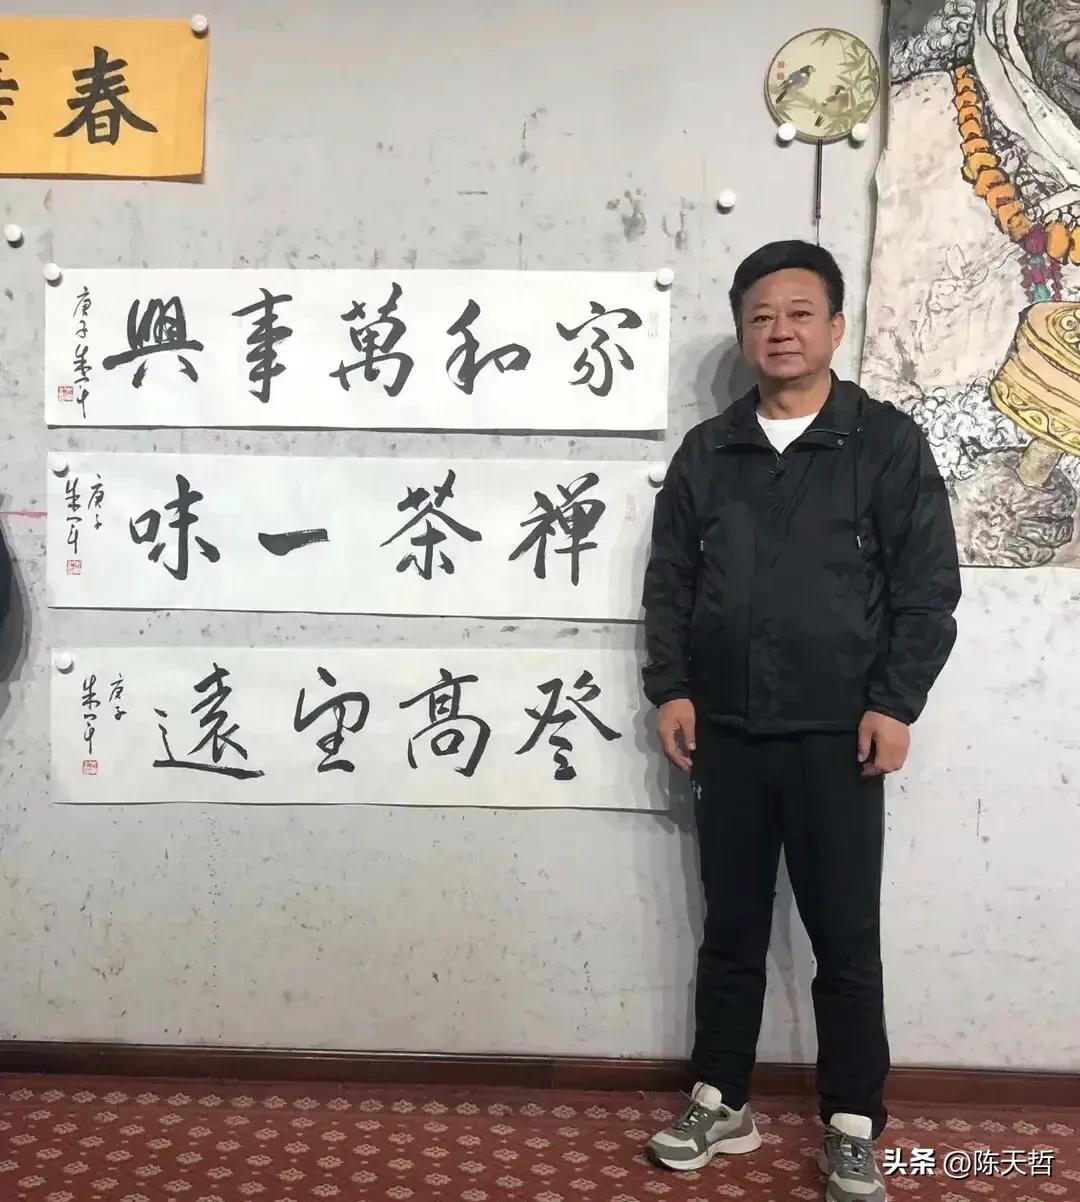 春
家和萬事興
庚子朱軍
禅茶一味
庚子
朱軍
登高望遠
庚子
朱軍
头条 @陈天哲